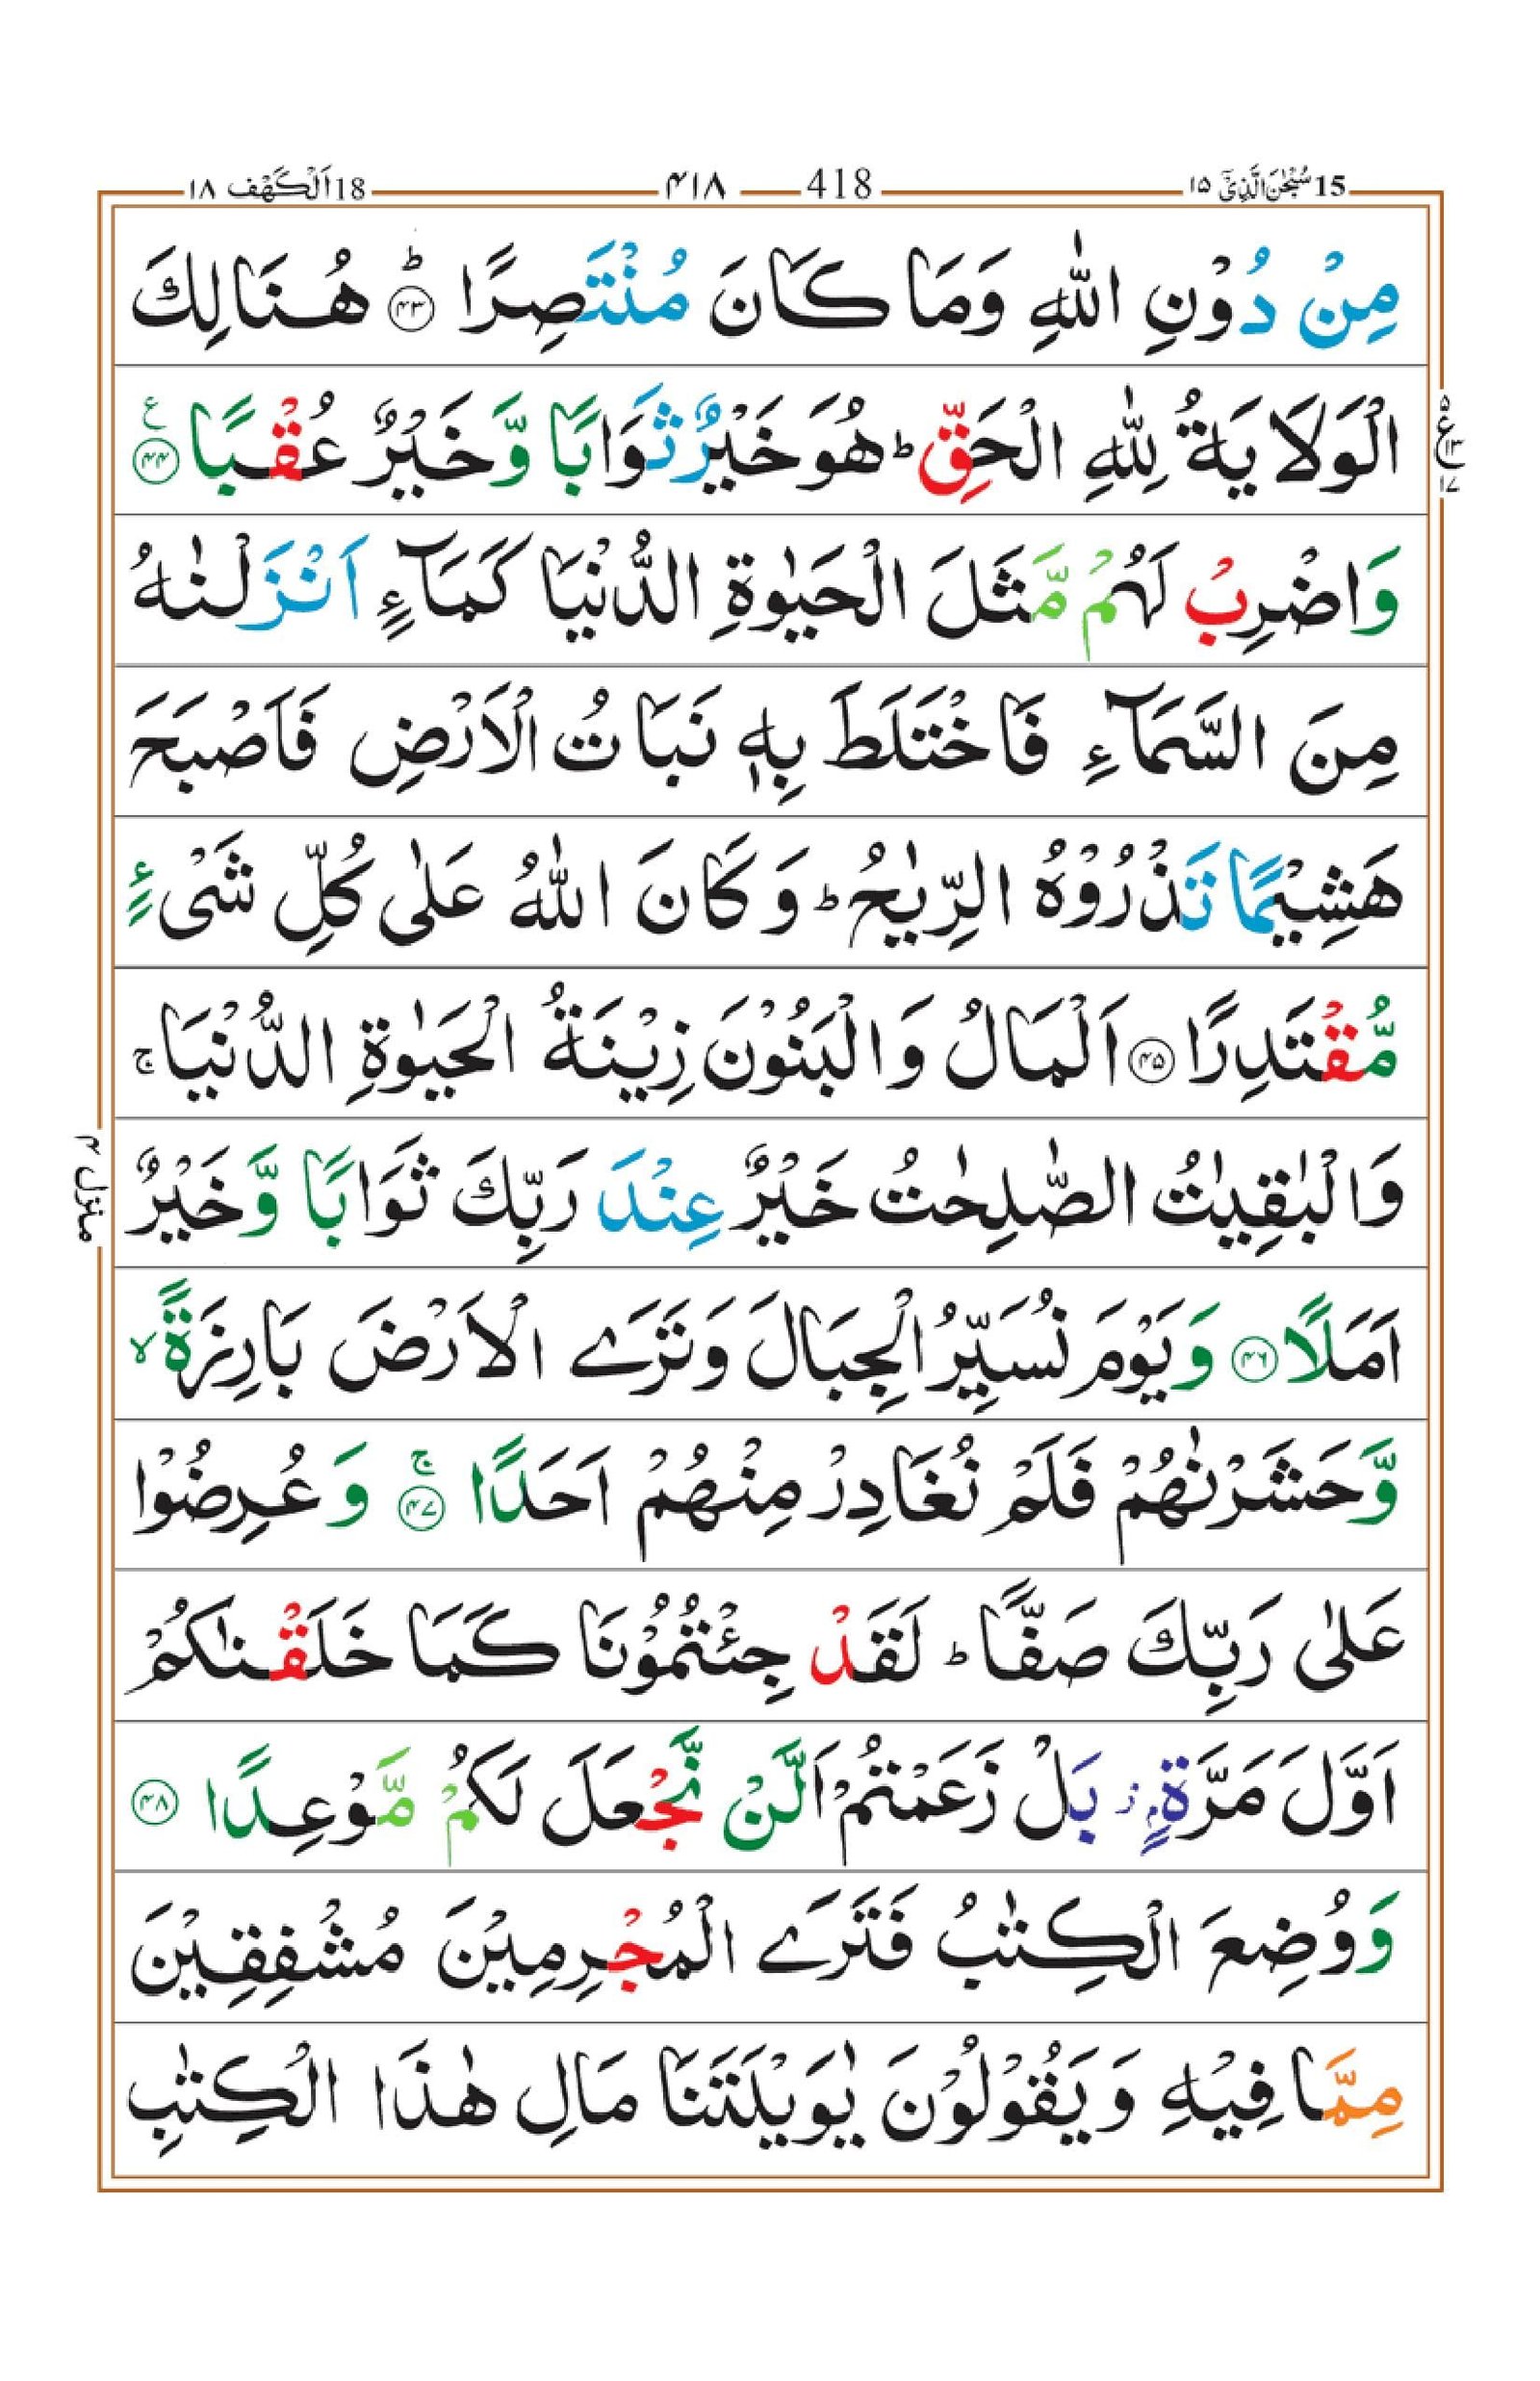 15 سُبْحٰنَ الَّذِیْۤ ۱۵ 418 ۴۱۸ 18 اَلْكَهْف ۱۸
مِنْ دُوْنِ اللّٰهِ وَمَا كَانَ مُنْتَصِرًا ؕ ۴۳ هُنَالِكَ
الْوَلَایَةُ لِلّٰهِ الْحَقِّ ؕ هُوَ خَیْرٌ ثَوَابًا وَّ خَیْرٌ عُقْبًا ۴۴ ع
۵ ع ۱۳ ۱۷
وَاضْرِبْ لَهُمْ مَّثَلَ الْحَیٰوةِ الدُّنْیَا كَمَآءٍ اَنْزَلْنٰهُ
مِنَ السَّمَآءِ فَاخْتَلَطَ بِهٖ نَبَاتُ الْاَرْضِ فَاَصْبَحَ
هَشِیْمًا تَذْرُوْهُ الرِّیٰحُ ؕ وَ كَانَ اللّٰهُ عَلٰى كُلِّ شَیْءٍ
مُّقْتَدِرًا ۴۵ اَلْمَالُ وَ الْبَنُوْنَ زِیْنَةُ الْحَیٰوةِ الدُّنْیَا ج
وَالْبٰقِیٰتُ الصّٰلِحٰتُ خَیْرٌ عِنْدَ رَبِّكَ ثَوَابًا وَّ خَیْرٌ
منزل ۴
اَمَلًا ۴۶ وَ یَوْمَ نُسَیِّرُ الْجِبَالَ وَ تَرَے الْاَرْضَ بَارِزَةً لا
وَّ حَشَرْنٰهُمْ فَلَمْ نُغَادِرْ مِنْهُمْ اَحَدًا ج ۴۷ وَ عُرِضُوْا
عَلٰى رَبِّكَ صَفًّا ؕ لَقَدْ جِئْتُمُوْنَا كَمَا خَلَقْنٰكُمْ
اَوَّلَ مَرَّةٍۭ ز بَلْ زَعَمْتُمْ اَلَّنْ نَّجْعَلَ لَكُمْ مَّوْعِدًا ۴۸
وَ وُضِعَ الْكِتٰبُ فَتَرَے الْمُجْرِمِیْنَ مُشْفِقِیْنَ
مِمَّا فِیْهِ وَ یَقُوْلُوْنَ یٰوَیْلَتَنَا مَالِ هٰذَا الْكِتٰبِ